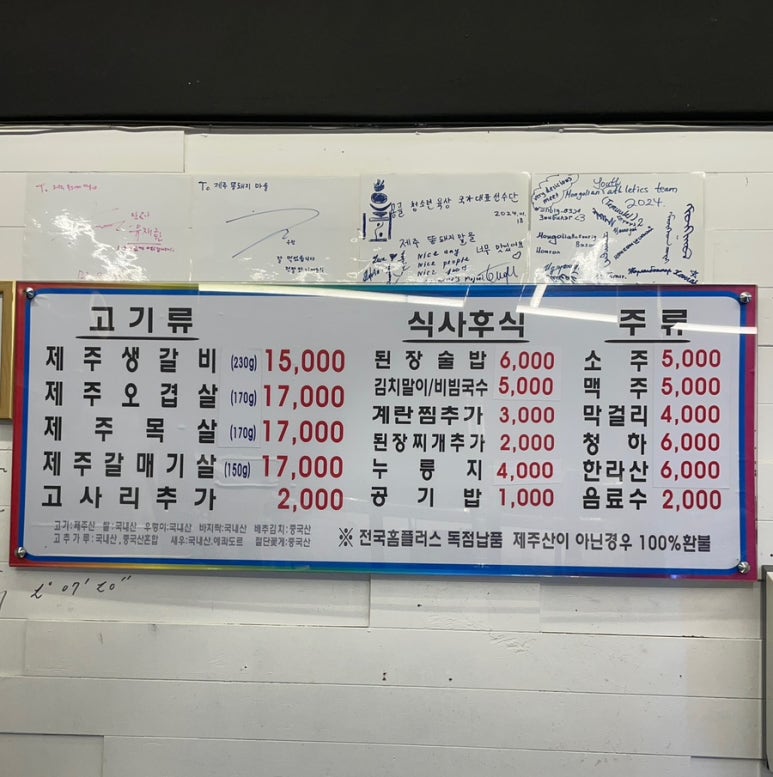 To 제주 똥돼지 마을
몽골 청소년 육상 국가대표선수단
2024.
제주 똥돼지 마을
너무 맛있어요
Nice day
Nice people
Nice food
very delicious
meet
Youth
Mongolian athletics team
2024.
고기류
제주생갈비 (230g) 15,000
제주오겹살 (170g) 17,000
제주목살 (170g) 17,000
제주갈매기살 (150g) 17,000
고사리추가 2,000
식사후식
된장술밥 6,000
김치말이/비빔국수 5,000
계란찜추가 3,000
된장찌개추가 2,000
누룽지 4,000
공기밥 1,000
주류
소주 5,000
맥주 5,000
막걸리 4,000
청하 6,000
한라산 6,000
음료수 2,000
고기:제주산 쌀:국내산 우렁이:국내산 바지락:국내산 배추김치:중국산
고추가루:국내산,중국산혼합 새우:국내산,에콰도르 절단꽃게:중국산
※ 전국홈플러스 독점납품 제주산이 아닌경우 100%환불